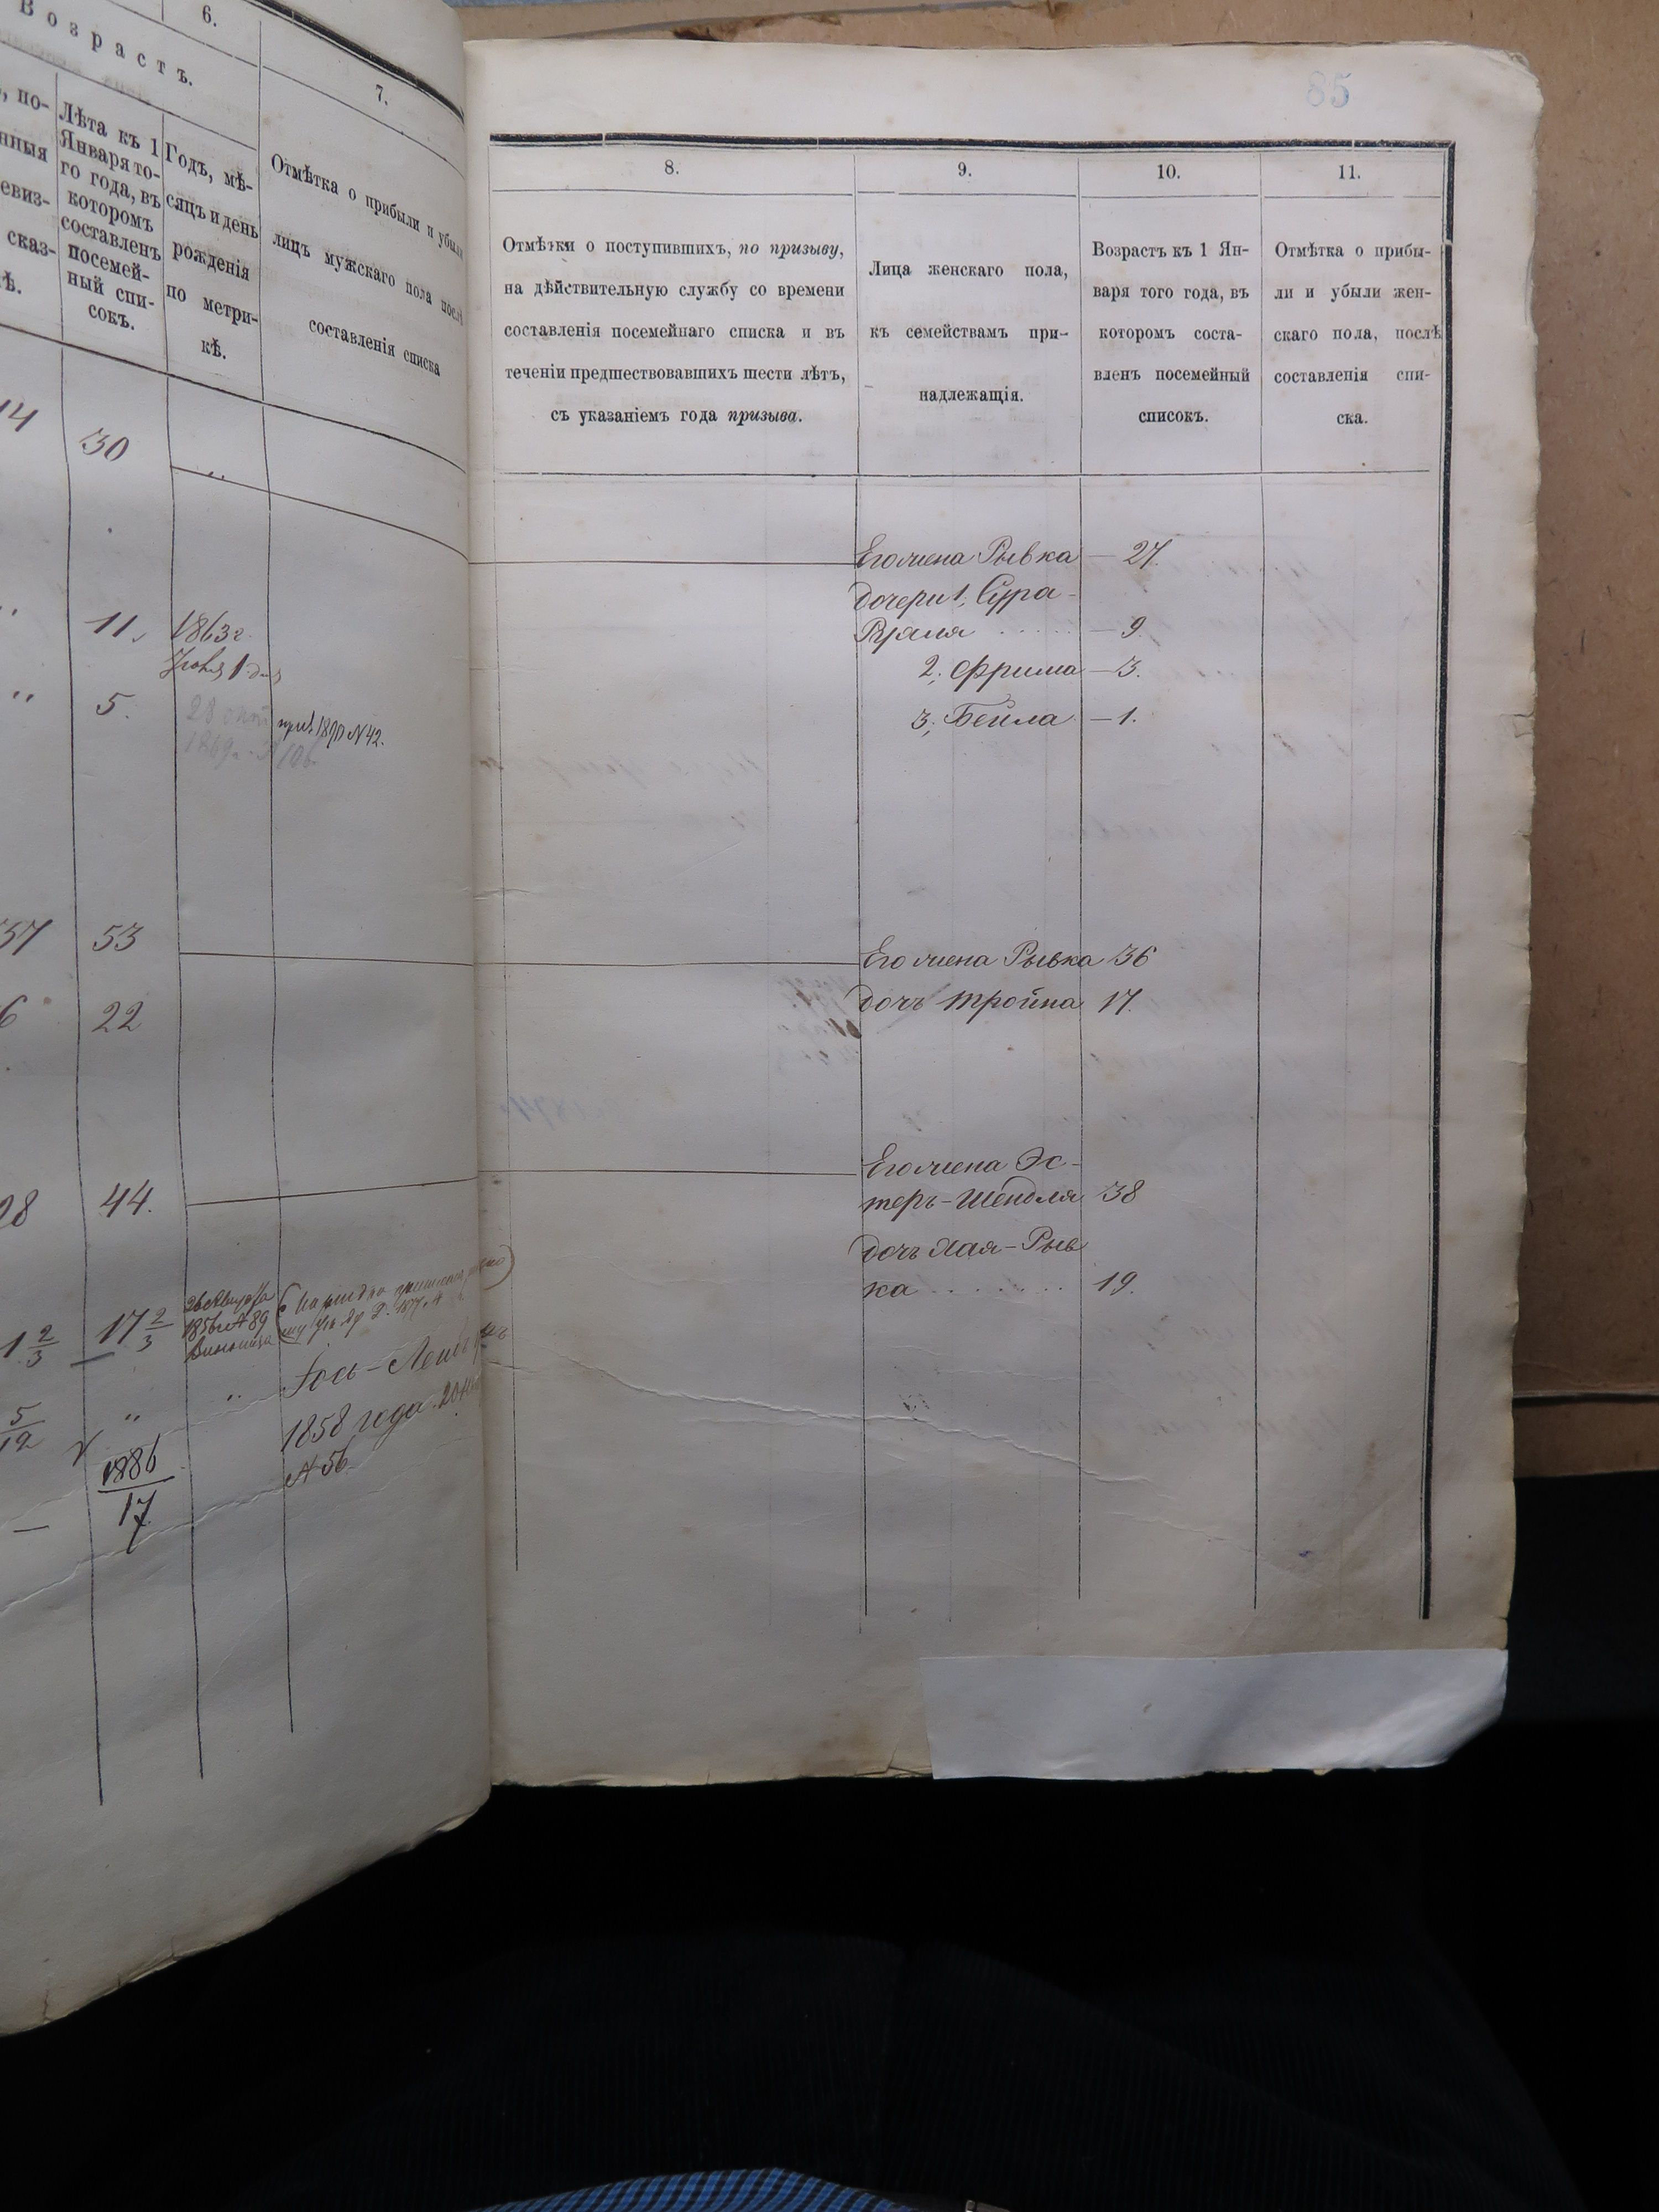 6.
Возрастъ.
7.
, по-
нныя
евиз-
сказ-
ѣ.
Лѣта къ 1
Января то-
го года, въ
которомъ
составленъ
посемей-
ный спи-
сокъ.
Годъ, мѣ-
сяцъ и день
рожденія
по метри-
кѣ.
Отмѣтка о прибыли и убыли
лицъ мужскаго пола послѣ
составленія списка
14 30
11. 1863 г.
5.
28
1869 г.
1890 №42.
57 53
6 22
28 44.
1 2/3 17 2/3 26 Августа
1856 №89
Винница
5/12
Іось-Лейб
1858 года
№ 56
1886
17
85
8.
9.
10.
11.
Отмѣтки о поступившихъ, по призыву,
на дѣйствительную службу со времени
составленія посемейнаго списка и въ
теченіи предшествовавшихъ шести лѣтъ,
съ указаніемъ года призыва.
Лица женскаго пола,
къ семействамъ при-
надлежащія.
Возрастъ къ 1 Ян-
варя того года, въ
которомъ соста-
вленъ посемейный
списокъ.
Отмѣтка о прибы-
ли и убыли жен-
скаго пола, послѣ
составленія спи-
ска.
Его жена Рывка — 27.
дочери 1, Сура-
— 9.
2, Фрима — 3.
3, Бейла — 1.
Его жена Рывка 36
дочь Тройна 17.
Его жена Эс-
теръ-Шендля 38
дочь Хая-Рыв
ка 19.